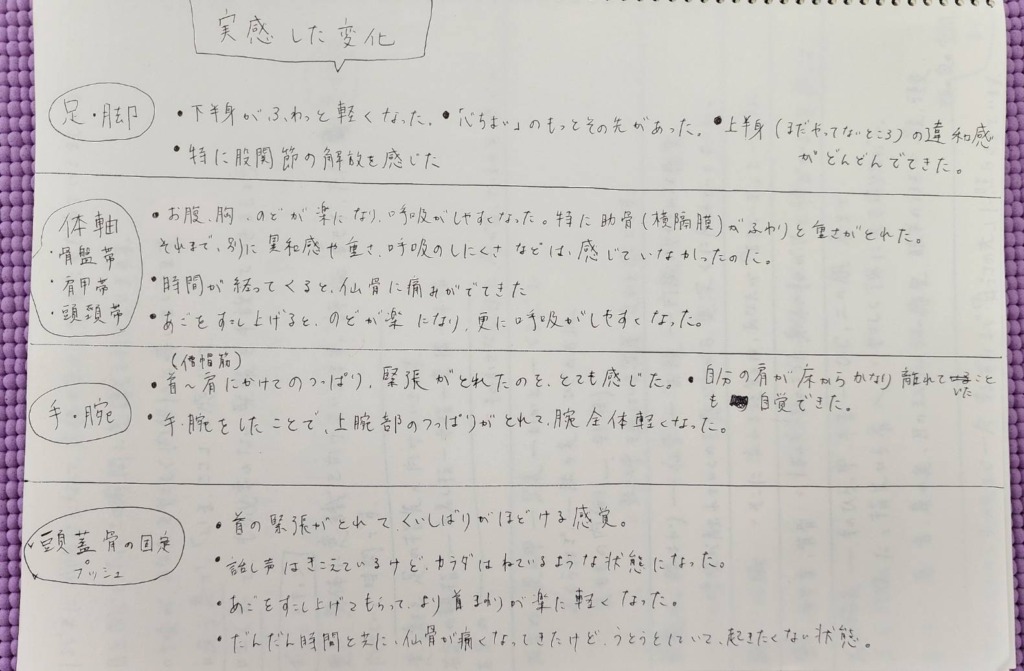 実感した変化
足・脚
・下半身がふわっと軽くなった。・「心ちよい」のもっとその先があった。・上半身(まだやってないところ)の違和感
がどんどんでてきた。
・特に股関節の解放を感じた
体軸
・骨盤帯
・肩甲帯
・頭頸帯
・お腹、胸、のどが楽になり、呼吸がしやすくなった。特に肋骨(横隔膜)がふわりと重さがとれた。
それまで、別に異和感や重さ、呼吸のしにくさなどは、感じていなかったのに。
・時間が経ってくると、仙骨に痛みがでてきた
・あごをすこし上げると、のどが楽になり、更に呼吸がしやすくなった。
手・腕
(僧帽筋)
・首〜肩にかけてのつっぱり、緊張がとれたのを、とても感じた。・自分の肩が床からかなり離れていたこと
も自覚できた。
・手・腕をしたことで、上腕部のつっぱりがとれて、腕全体軽くなった。
頭蓋骨の固定
プッシュ
・首の緊張がとれてくいしばりがほどける感覚。
・話し声はきこえているけど、カラダはねているような状態になった。
・あごをすこし上げてもらって、より首まわりが楽に軽くなった。
・だんだん時間と共に、仙骨が痛くなってきたけど、うとうとしていて、起きたくない状態。